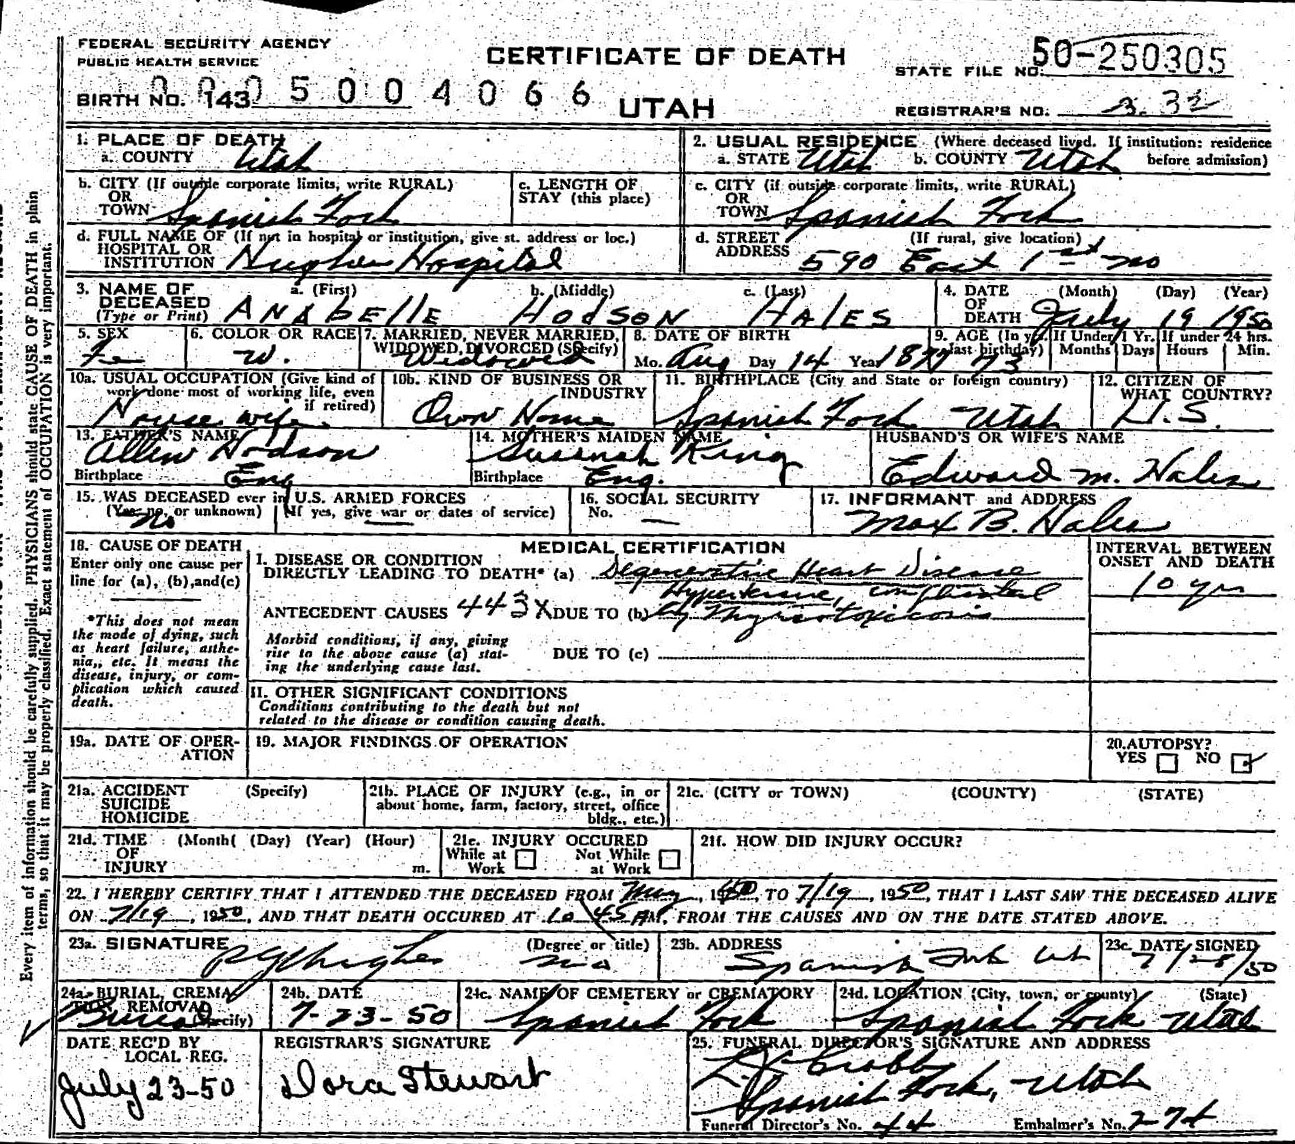 FEDERAL SECURITY AGENCY
PUBLIC HEALTH SERVICE
CERTIFICATE OF DEATH
STATE FILE NO. 50-250305
BIRTH NO. 143 0005004066
UTAH
REGISTRAR'S NO. 332
1. PLACE OF DEATH
a. COUNTY Utah
2. USUAL RESIDENCE (Where deceased lived. If institution: residence before admission)
a. STATE Utah b. COUNTY Utah
b. CITY (If outside corporate limits, write RURAL)
OR
TOWN Spanish Fork
c. LENGTH OF
STAY (this place)
c. CITY (if outside corporate limits, write RURAL)
OR
TOWN Spanish Fork
d. FULL NAME OF (If not in hospital or institution, give st. address or loc.)
HOSPITAL OR
INSTITUTION Hughes Hospital
d. STREET (If rural, give location)
ADDRESS 590 East 1st no
3. NAME OF
DECEASED
(Type or Print)
a. (First) b. (Middle) c. (Last)
ANABELLE HODSON HALES
4. DATE
OF
DEATH
(Month) (Day) (Year)
July 19 1950
5. SEX
Fe
6. COLOR OR RACE
W.
7. MARRIED, NEVER MARRIED,
WIDOWED, DIVORCED (Specify)
Widowed
8. DATE OF BIRTH
Mo. Aug Day 14 Year 1877
9. AGE (In yrs. last birthday) 73
If Under 1 Yr.
Months Days
If under 24 hrs.
Hours Min.
10a. USUAL OCCUPATION (Give kind of
work done most of working life, even
if retired)
House wife
10b. KIND OF BUSINESS OR
INDUSTRY
Own Home
11. BIRTHPLACE (City and State or foreign country)
Spanish Fork Utah
12. CITIZEN OF
WHAT COUNTRY?
U.S.
13. FATHER'S NAME
Allen Hodson
Birthplace Eng
14. MOTHER'S MAIDEN NAME
Susannah King
Birthplace Eng.
HUSBAND'S OR WIFE'S NAME
Edward M. Hales
15. WAS DECEASED ever in U.S. ARMED FORCES
(Yes, no, or unknown) (If yes, give war or dates of service)
No —
16. SOCIAL SECURITY
No. —
17. INFORMANT and ADDRESS
Max B. Hales
18. CAUSE OF DEATH
Enter only one cause per
line for (a), (b), and (c)
*This does not mean
the mode of dying, such
as heart failure, asthe-
nia,, etc. It means the
disease, injury, or com-
plication which caused
death.
MEDICAL CERTIFICATION
I. DISEASE OR CONDITION
DIRECTLY LEADING TO DEATH* (a) Degenerative Heart Disease
Hypertensive, complicated
ANTECEDENT CAUSES 443X DUE TO (b) by Thyrotoxicosis
Morbid conditions, if any, giving
rise to the above cause (a) stat-
ing the underlying cause last.
DUE TO (c)
INTERVAL BETWEEN
ONSET AND DEATH
10 yrs
II. OTHER SIGNIFICANT CONDITIONS
Conditions contributing to the death but not
related to the disease or condition causing death.
19a. DATE OF OPER-
ATION
19. MAJOR FINDINGS OF OPERATION
20. AUTOPSY?
YES NO
21a. ACCIDENT (Specify)
SUICIDE
HOMICIDE
21b. PLACE OF INJURY (e.g., in or
about home, farm, factory, street, office
bldg., etc.)
21c. (CITY or TOWN) (COUNTY) (STATE)
21d. TIME (Month( (Day) (Year) (Hour)
OF
INJURY m.
21e. INJURY OCCURED
While at Work Not While at Work
21f. HOW DID INJURY OCCUR?
22. I HEREBY CERTIFY THAT I ATTENDED THE DECEASED FROM May, 1950, TO 7/19, 1950, THAT I LAST SAW THE DECEASED ALIVE
ON 7/19, 1950, AND THAT DEATH OCCURED AT 10 45 AM. FROM THE CAUSES AND ON THE DATE STATED ABOVE.
23a. SIGNATURE (Degree or title)
Hughes MD
23b. ADDRESS
Spanish Fork Ut
23c. DATE SIGNED
7/28/50
24a. BURIAL, CREMA-
TION, REMOVAL
(Specify)
Burial
24b. DATE
7-23-50
24c. NAME OF CEMETERY or CREMATORY
Spanish Fork
24d. LOCATION (City, town, or county) (State)
Spanish Fork Utah
DATE REC'D BY
LOCAL REG.
July 23-50
REGISTRAR'S SIGNATURE
Dora Stewart
25. FUNERAL DIRECTOR'S SIGNATURE AND ADDRESS
Spanish Fork, Utah
Funeral Director's No. 44 Embalmer's No. 274
Every item of information should be carefully supplied. PHYSICIANS should state CAUSE OF DEATH in plain
terms, so that it may be properly classified. Exact statement of OCCUPATION is very important.